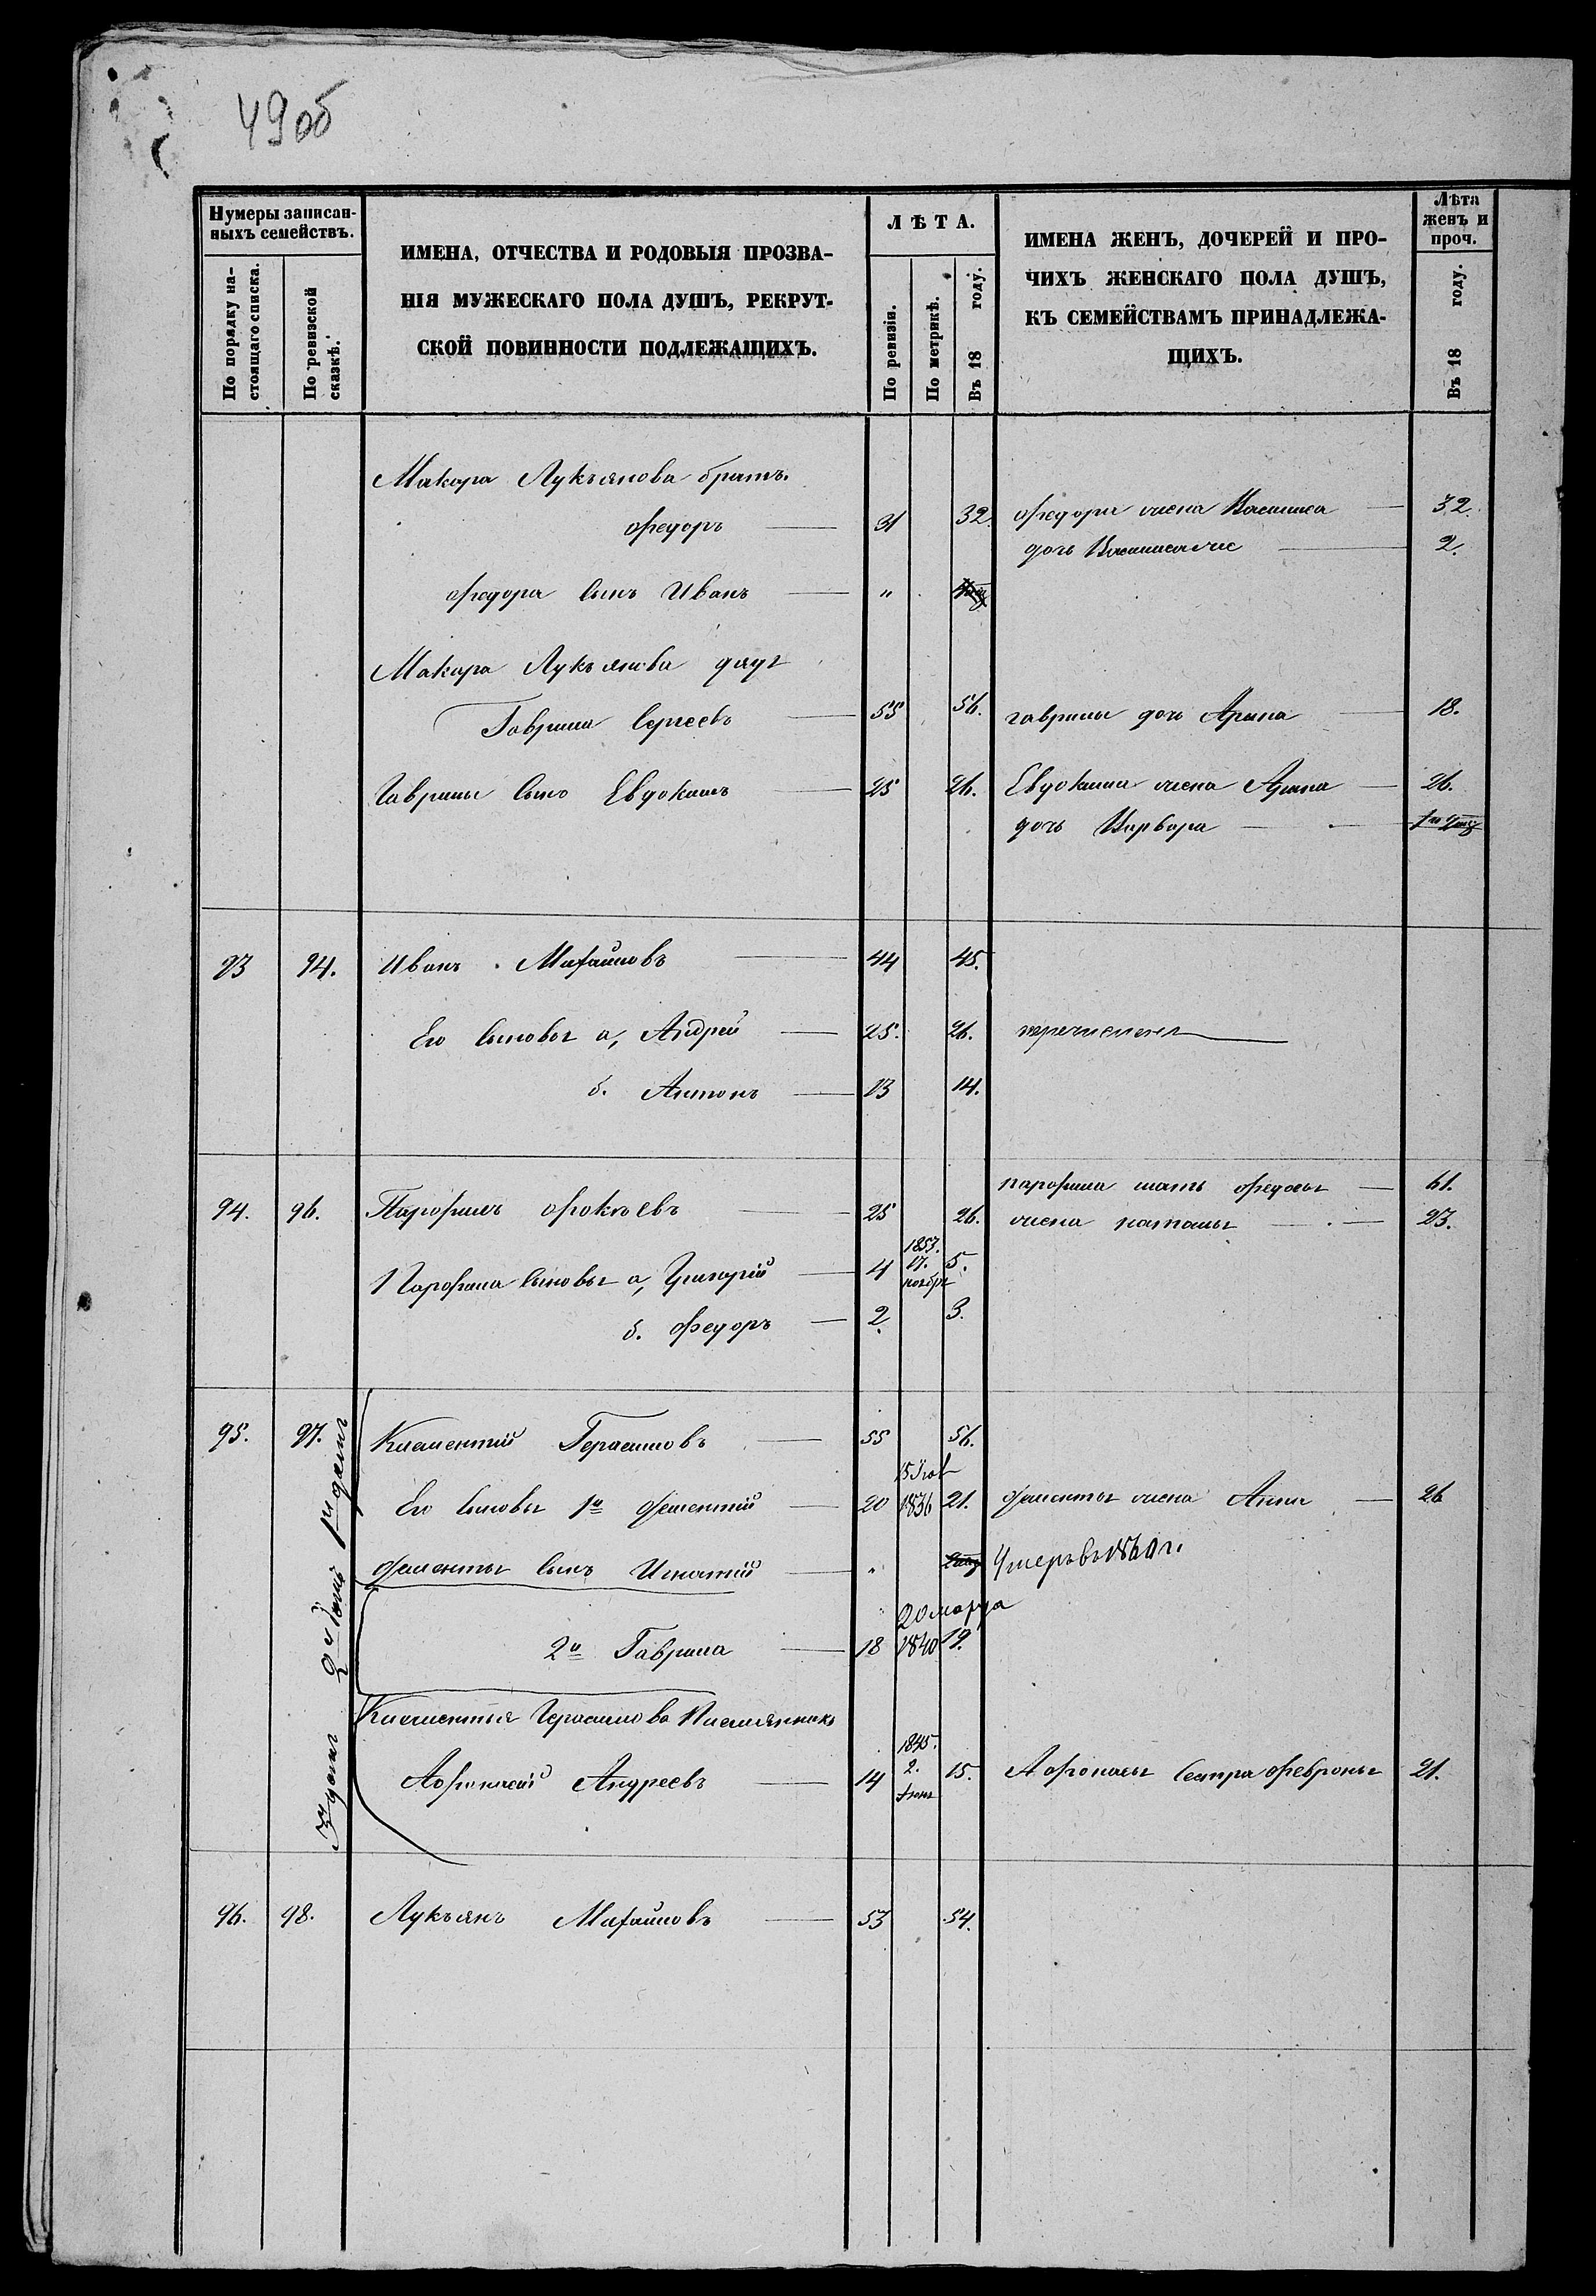 49 об
Нумеры записан-
ныхъ семействъ.
По порядку на-
стоящаго списка.
По ревизской
сказкѣ.
ИМЕНА, ОТЧЕСТВА И РОДОВЫЯ ПРОЗВА-
НІЯ МУЖЕСКАГО ПОЛА ДУШЪ, РЕКРУТ-
СКОЙ ПОВИННОСТИ ПОДЛЕЖАЩИХЪ.
ЛѢТА.
По ревизіи.
По метрикѣ.
Въ 18 году.
ИМЕНА ЖЕНЪ, ДОЧЕРЕЙ И ПРО-
ЧИХЪ ЖЕНСКАГО ПОЛА ДУШЪ,
КЪ СЕМЕЙСТВАМЪ ПРИНАДЛЕЖА-
ЩИХЪ.
Лѣта
женъ и
проч.
Въ 18 году.
Макара Лукьянова братъ.
Федоръ 31 32. Федора жена Василиса 32.
дочь 2.
Федора сынъ Иванъ "
Макара Лукьянова дядя
Гаврила Сергеевъ 55 56. гаврилы дочь Арина 18.
Гаврилы сынъ Евдокимъ 25 26. Евдокима жена Арина 26.
дочь Варвара
93 94. Иванъ Михайловъ 44 45.
Его сыновья а, Андрей 25. 26. перечислен
б. Антонъ 13 14.
парфила мать федосья 61.
94. 96. Парфилъ Фокѣевъ 25 26. жена наталья 23.
Парфила сыновья а, Григорій 4 1853. 17. ноября 5.
б. Федоръ 2. 3.
95. 97. Климентий Герасимовъ 55 56.
Его сыновья 1й Фементий 20 15 1836 21. Фементья жена Анна 26
Фементья сынъ Игнатий " Умеръ въ 1860 г.
20 марта
2й Гаврила 18 1840 19.
Климентья Герасимова Племянникъ
Афонасий Андреевъ 14 1845. 2. 15. Афонасья Сестра февронья 21.
96. 98. Лукьянъ Михайловъ 53 54.